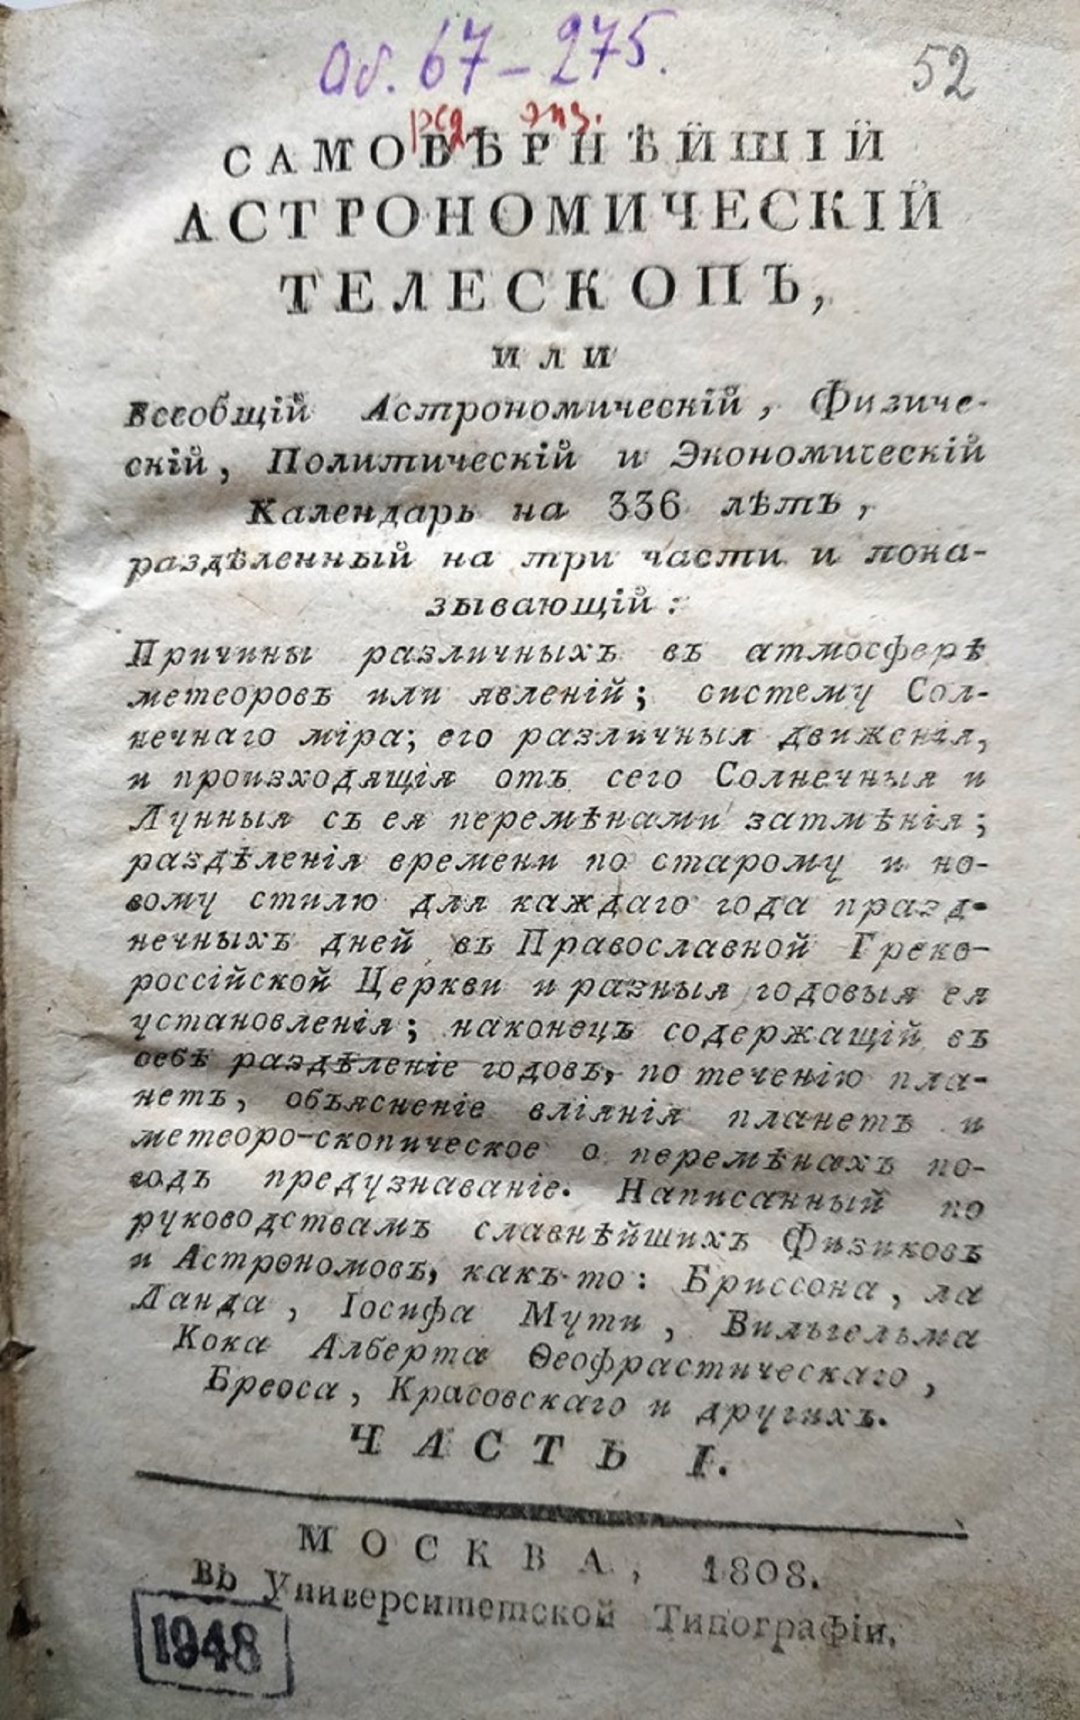 Аб. 67-275.
52
ред. экз.
САМОВѢРНѢЙШІЙ
АСТРОНОМИЧЕСКІЙ
ТЕЛЕСКОПЪ,
ИЛИ
Всеобщій Астрономическій, Физиче-
скій, Политическій и Экономическій
Календарь на 336 лѣтъ,
раздѣленный на три части и пока-
зывающій:
Причины различныхъ въ атмосферѣ
метеоровъ или явленій; систему Сол-
нечнаго міра; его различныя движенія,
и произходящія отъ сего Солнечныя и
Лунныя съ ея перемѣнами затмѣнія;
раздѣленія времени по старому и но-
вому стилю для каждаго года празд-
нечныхъ дней въ Православной Греко-
россійской Церкви и разныя годовыя ея
установленія; наконецъ содержащій въ
себѣ раздѣленіе годовъ, по теченію пла-
нетъ, объясненіе вліянія планетъ и
метеоро-скопическое о перемѣнахъ по-
годъ предузнаваніе. Написанный по
руководствамъ славнѣйшихъ Физиковъ
и Астрономовъ, какъ-то: Бриссона, ла
Ланда, Іосифа Мути, Вильгельма
Кока Алберта Ѳеофрастическаго,
Бреоса, Красовскаго и другихъ.
ЧАСТЬ I.
МОСКВА, 1808.
Въ Университетской Типографіи.
1948